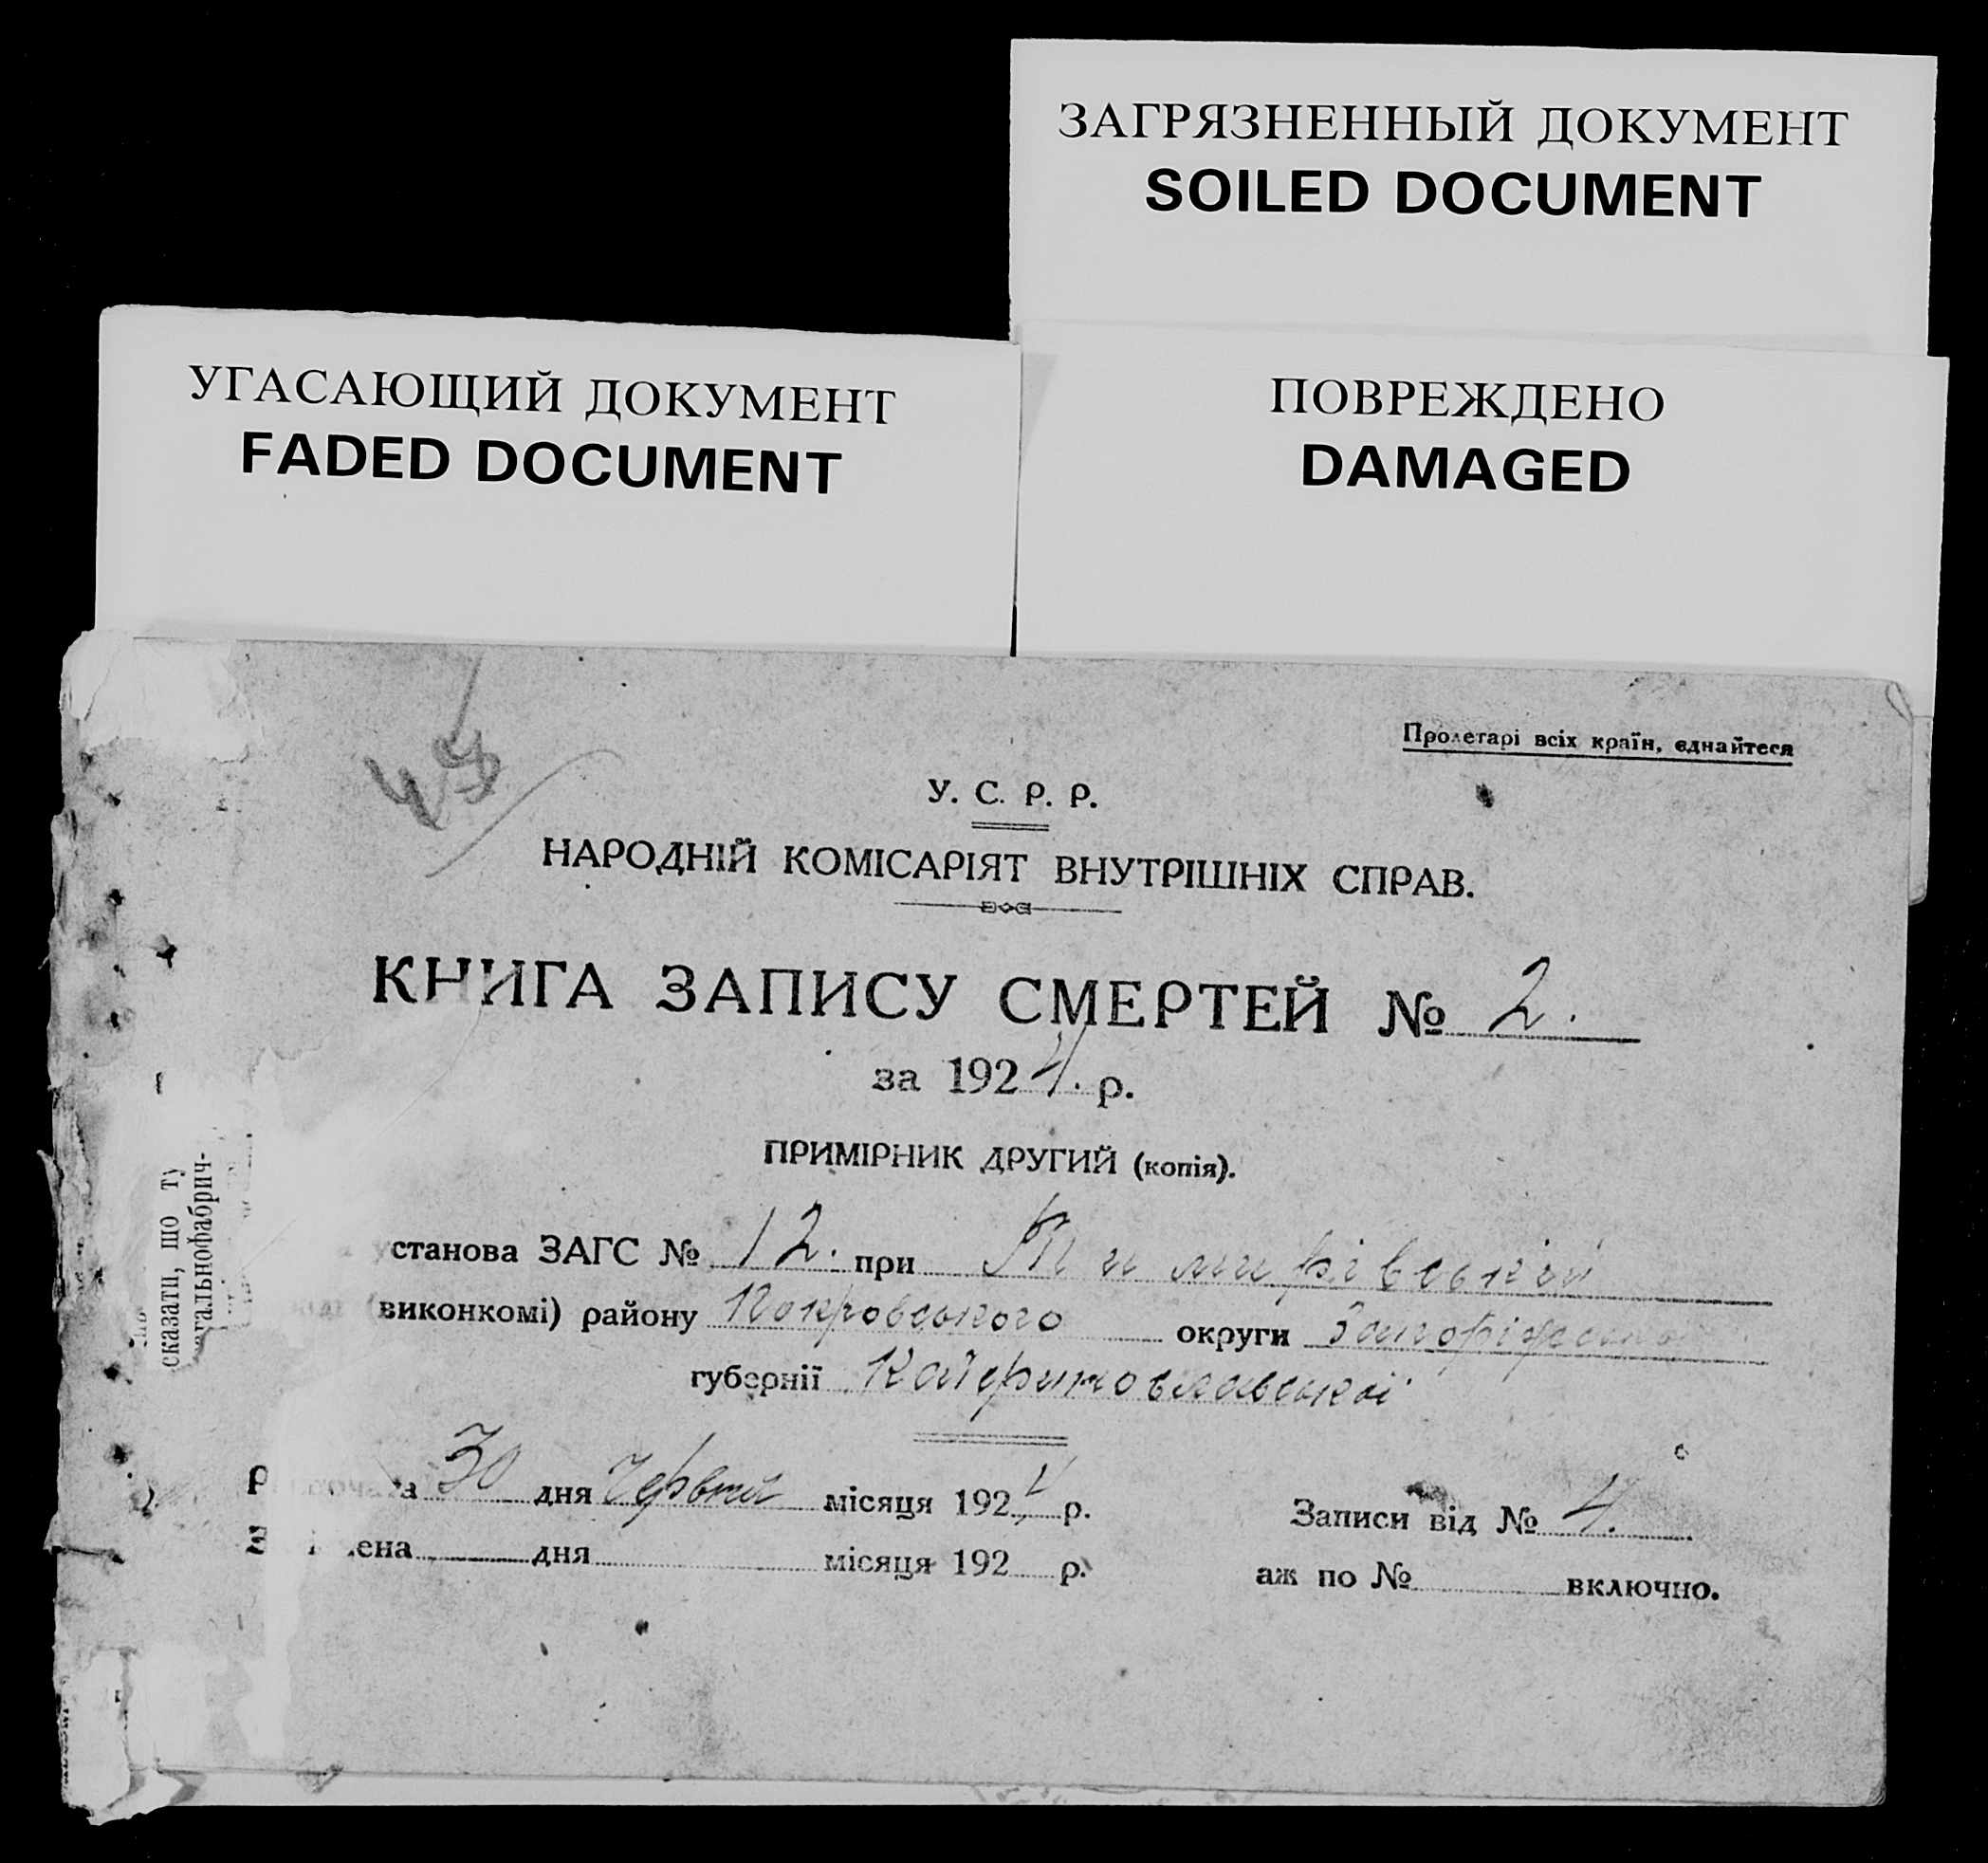 ЗАГРЯЗНЕННЫЙ ДОКУМЕНТ
SOILED DOCUMENT
УГАСАЮЩИЙ ДОКУМЕНТ
FADED DOCUMENT
ПОВРЕЖДЕНО
DAMAGED
Пролетарі всіх країн, єднайтеся
У. С. Р. Р.
НАРОДНІЙ КОМІСАРІЯТ ВНУТРІШНІХ СПРАВ.
КНИГА ЗАПИСУ СМЕРТЕЙ № 2.
за 1924. р.
ПРИМІРНИК ДРУГИЙ (копія).
установа ЗАГС № 12. при
(виконкомі) району Покровського округи
губернії
30 дня червня місяця 1924 р.
Записи від № 4.
дня місяця 192 р.
аж по № включно.
сказати, що ту
гальнофабрич-